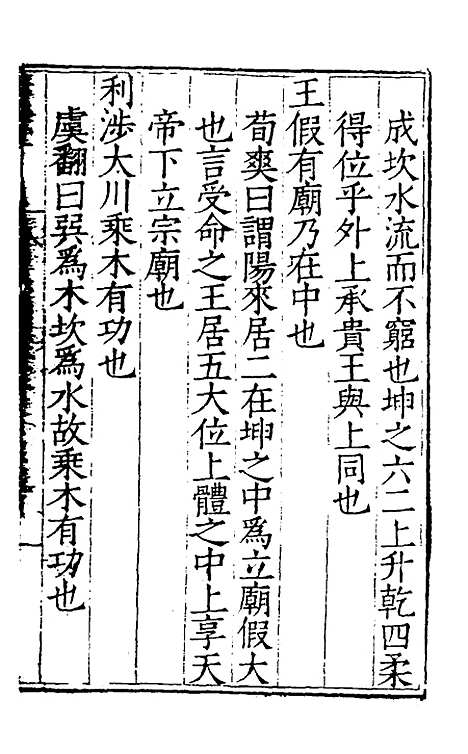 成坎水流而不窮也坤之六二上升乾四柔
得位乎外上承貴王與上同也
王假有廟乃在中也
荀爽曰謂陽來居二在坤之中爲立廟假大
也言受命之王居五大位上體之中上享天
帝下立宗廟也
利涉大川乘木有功也
虞翻曰巽爲木坎爲水故乘木有功也